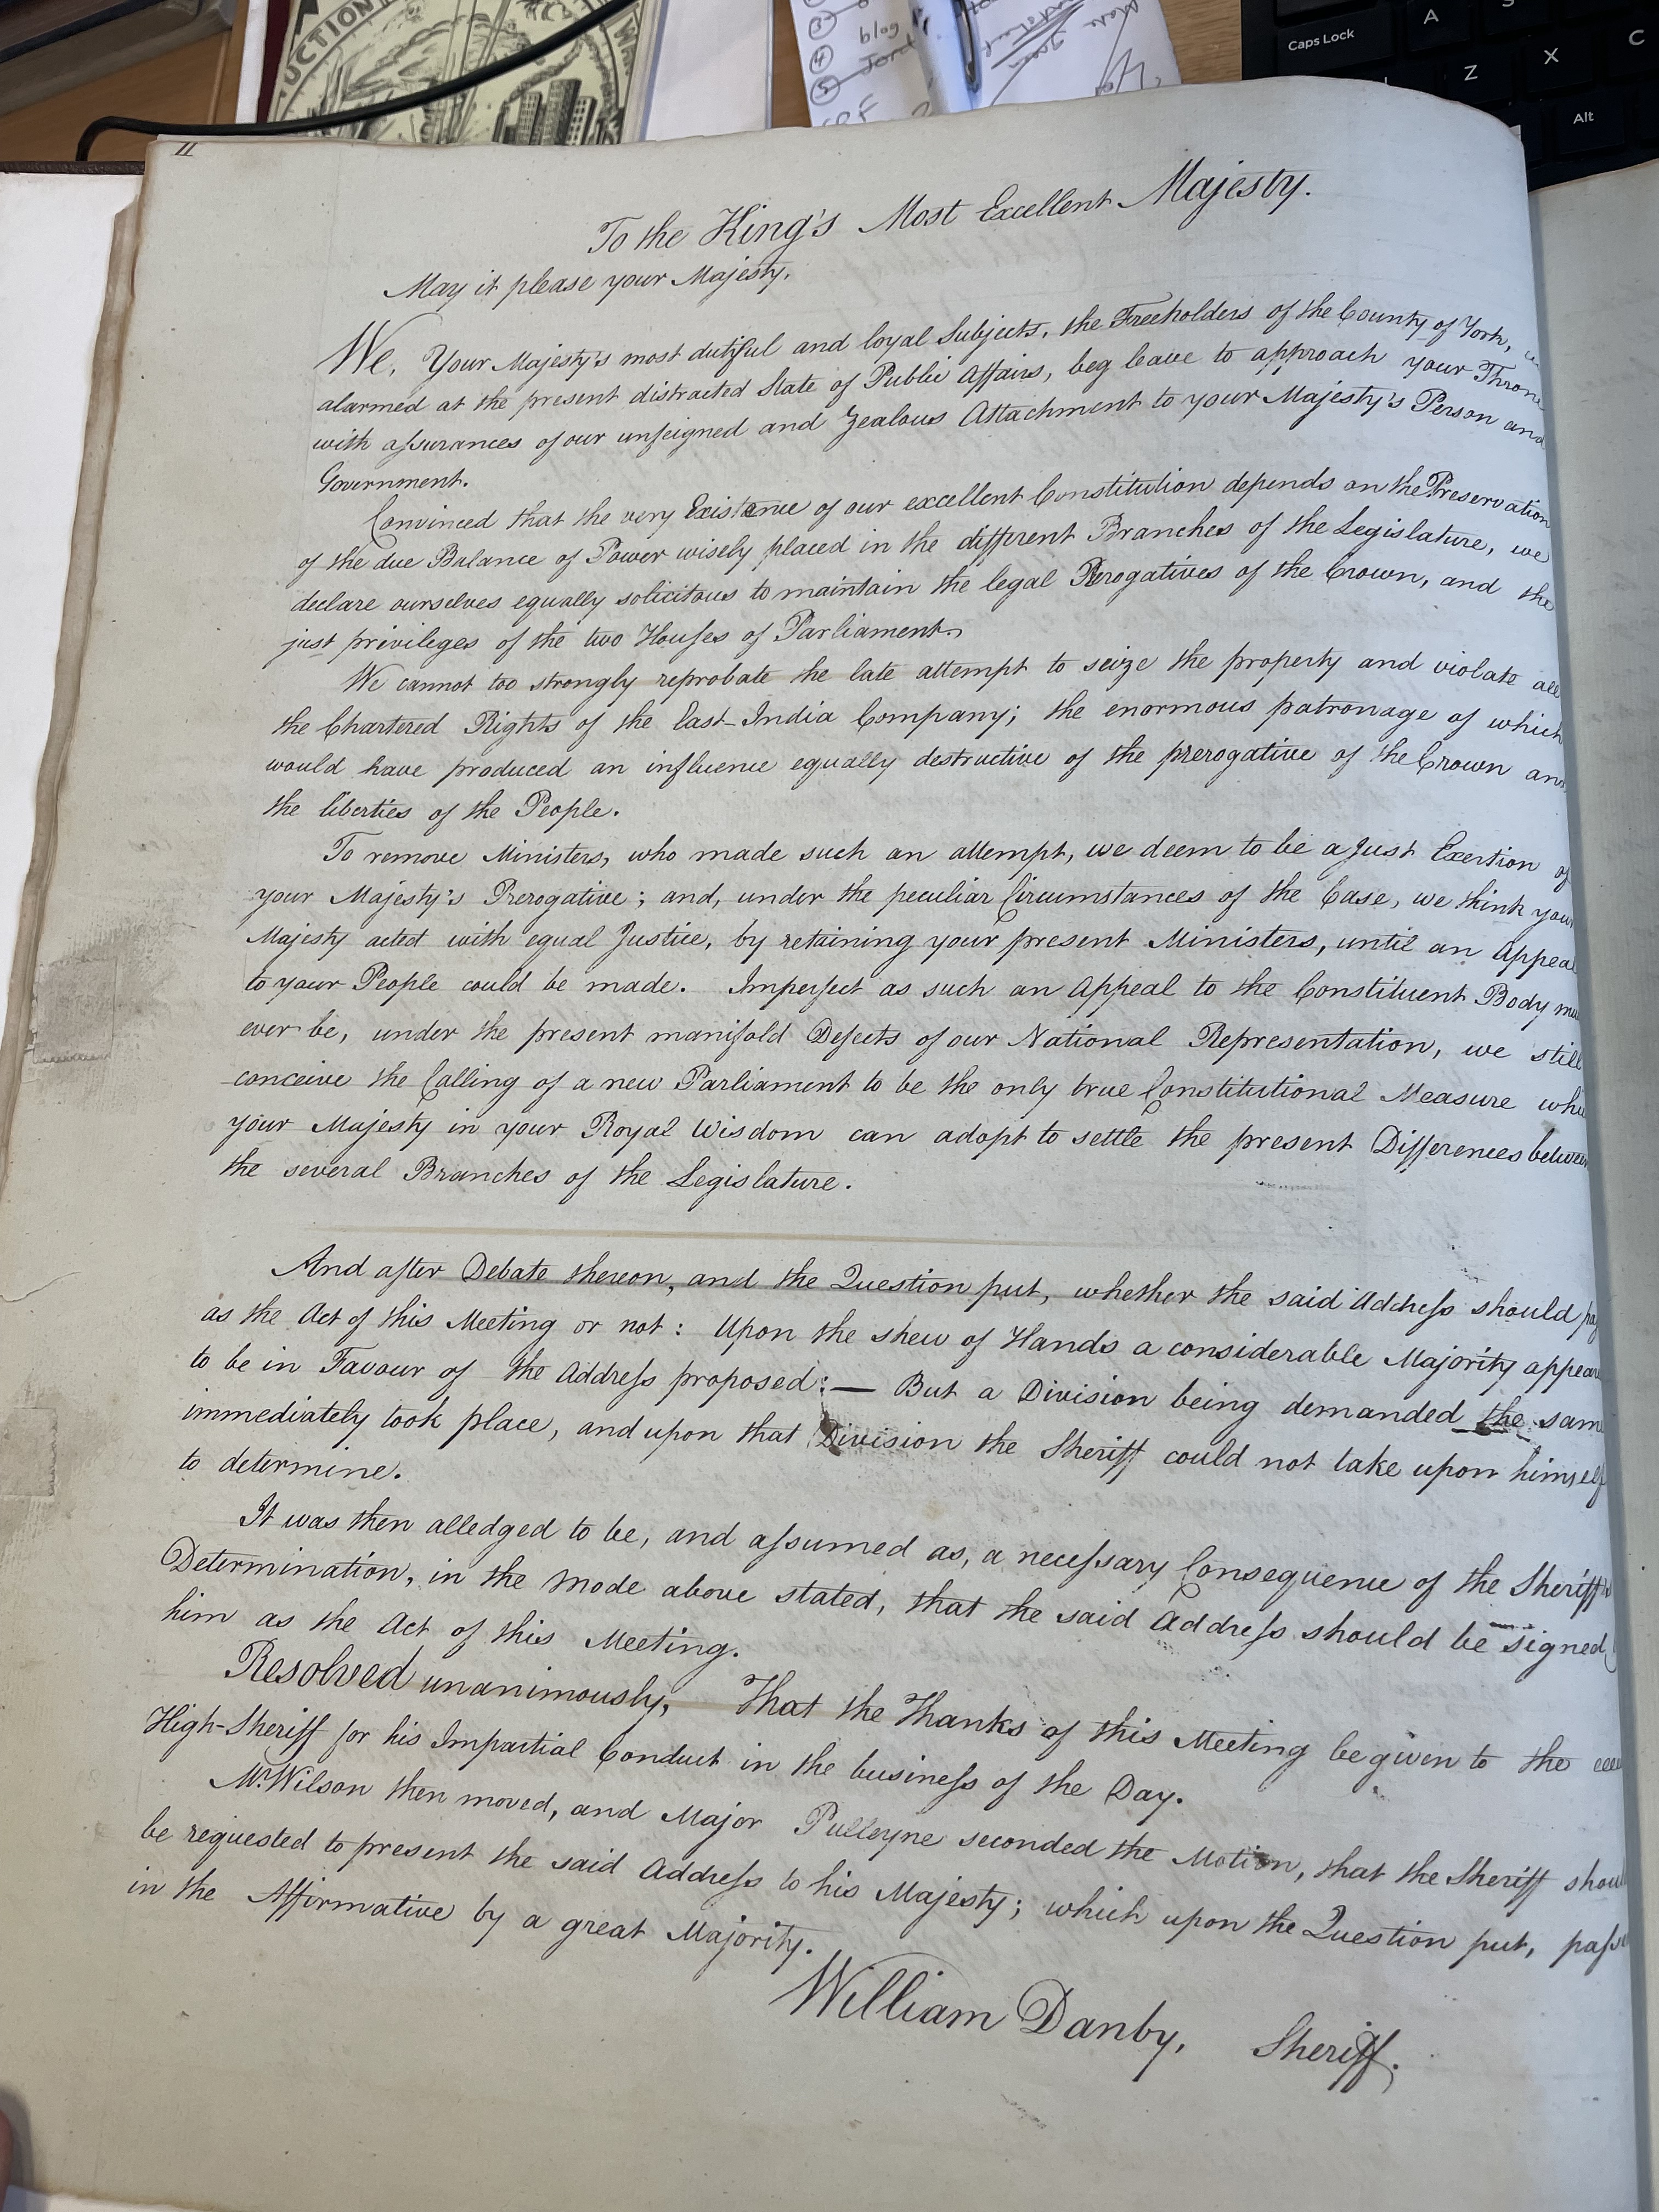 UCTION
WAY
2
4
blog
5
Caps Lock
A
S
Z
X
C
Alt
11
To the King's Most Excellent Majesty.
May it please your Majesty,
We, Your Majesty's most dutiful and loyal Subjects, the Freeholders of the County of York,
alarmed at the present distracted State of Public Affairs, beg leave to approach your Throne
with assurances of our unfeigned and Zealous Attachment to your Majesty's Person and
Government.
Convinced that the very Existence of our excellent Constitution depends on the Preservation
of the due Balance of Power wisely placed in the different Branches of the Legislature, we
declare ourselves equally solicitous to maintain the legal Prerogatives of the Crown, and the
just privileges of the two Houses of Parliament.
We cannot too strongly reprobate the late attempt to seize the property and violate all
the Chartered Rights of the East-India Company; the enormous patronage of which
would have produced an influence equally destructive of the prerogative of the Crown and
the liberties of the People.
To remove Ministers, who made such an attempt, we deem to be a just Exertion of
your Majesty's Prerogative; and, under the peculiar Circumstances of the Case, we think your
Majesty acted with equal Justice, by retaining your present Ministers, until an Appeal
to your People could be made. Imperfect as such an Appeal to the Constituent Body mu
ever be, under the present manifold Defects of our National Representation, we still
conceive the Calling of a new Parliament to be the only true Constitutional Measure whi
your Majesty in your Royal Wisdom can adopt to settle the present Differences between
the several Branches of the Legislature.
And after Debate thereon, and the Question put, whether the said Address should pa
as the Act of this Meeting or not: Upon the shew of Hands a considerable Majority appear
to be in Favour of the Address proposed:— But a Division being demanded the same
immediately took place, and upon that Division the Sheriff could not take upon himself
to determine.
It was then alledged to be, and assumed as, a necessary Consequence of the Sheriff's
Determination, in the Mode above stated, that the said Address should be signed
him as the Act of this Meeting.
Resolved unanimously, That the Thanks of this Meeting be given to the
High-Sheriff for his Impartial Conduct in the business of the Day.
Mr. Wilson then moved, and Major Pulleyne seconded the Motion, that the Sheriff shou
be requested to present the said Address to his Majesty; which upon the Question put, pass
in the Affirmative by a great Majority.
William Danby, Sheriff.